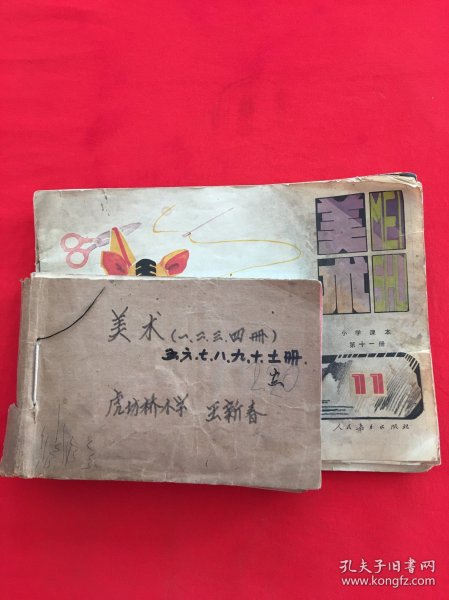 美术
小学课本
第十一册
11
人民教育出版社
美术(一.二.三.四册)
五.六.七.八.九.十.十一册.
虎坊桥小学 王新春
孔夫子旧书网
www.kongfz.com